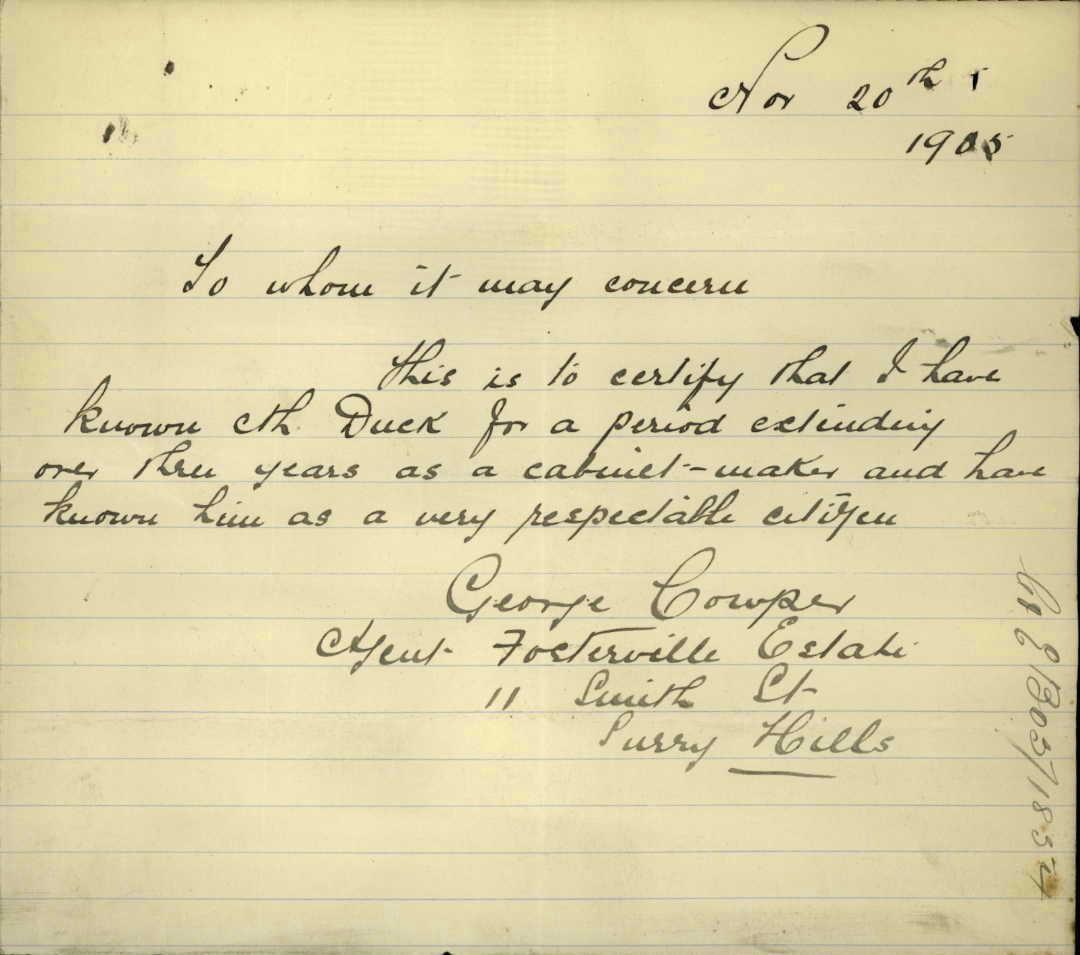 Nov 20th
1905
To whom it may concern
this is to certify that I have
known Ah Duck for a period extending
over three years as a cabinet-maker and have
known him as a very respectable citizen
George Cowper
Agent Fosterville Estate
11 Smith St
Surry Hills